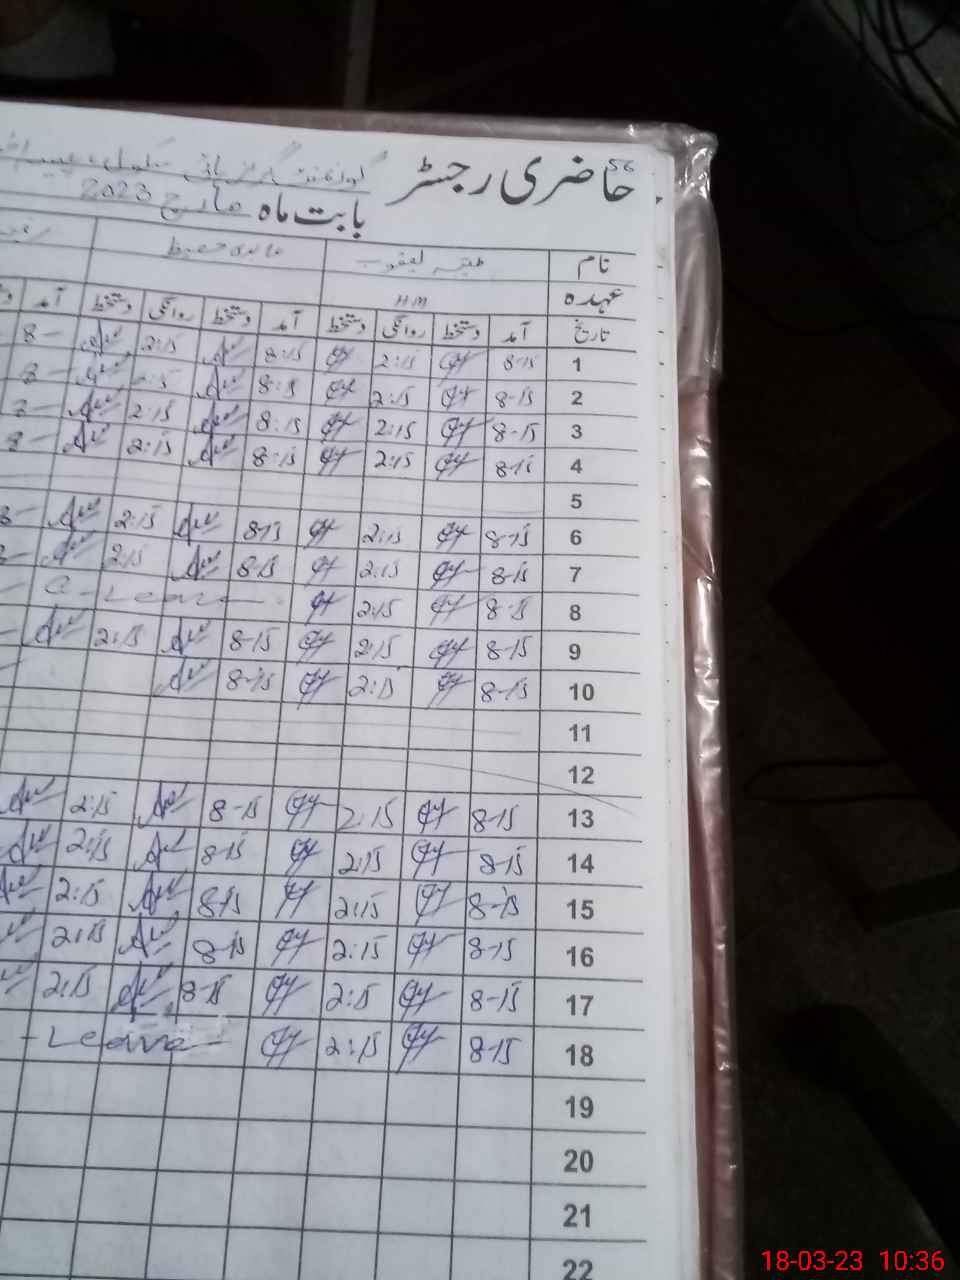 56
حاضری رجسٹر گورنمنٹ گرلز ہائی سکول
بابت ماہ مارچ 2023
نام
عہدہ HM
تاریخ آمد دستخط روانگی دستخط آمد دستخط روانگی دستخط آمد
1 8-15 2:15 8:15 2:15 8-
2 8-15 2:15 8:15 2:15 8-
3 8-15 2:15 8:15 2:15 8-
4 8-15 2:15 8:15 2:15 8-
5
6 8-15 2:15 8-15 2:15 8-
7 8-15 2:15 8-15 2:15 8-
8 8-15 2:15 C-Leave -
9 8-15 2:15 8-15 2:15 -
10 8-15 2:15 8-15
11
12
13 8-15 2:15 8-15 2:15
14 8-15 2:15 8-15 2:15
15 8-15 2:15 8-15 2:15
16 8-15 2:15 8-15 2:15
17 8-15 2:15 8-15 2:15
18 8-15 2:15 -Leave-
19
20
21
22
18-03-23 10:36